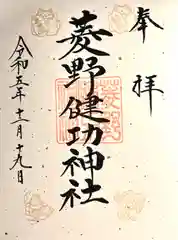 奉拝
菱野健功神社
令和五年十一月十九日